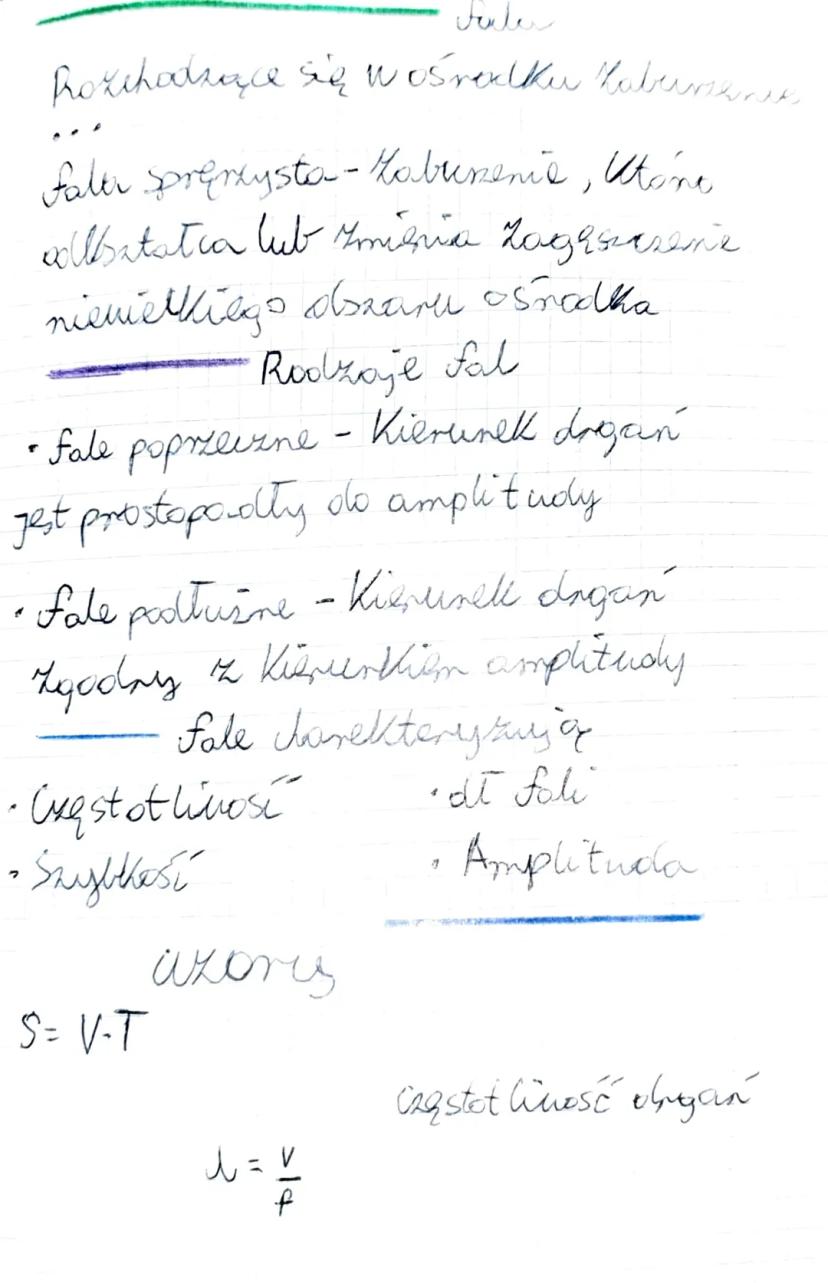 fala
Rozchodzące się w ośrodku zaburzenie
...
fala spręrzysta - zaburzenie, które
odkształca lub zmienia zagęszczenie
niewielkiego obszaru ośrodka
Rodzaje fal
• fale poprzeczne - Kierunek drgań
jest prostopadły do amplitudy
• fale podłużne - Kierunek drgań
zgodny z kierunkiem amplitudy
fale charekteryzują
• Częstotliwość • dł fali
• Szybkość • Amplituda
wzory
S = V·T
częstotliwość drgań
λ = v/f